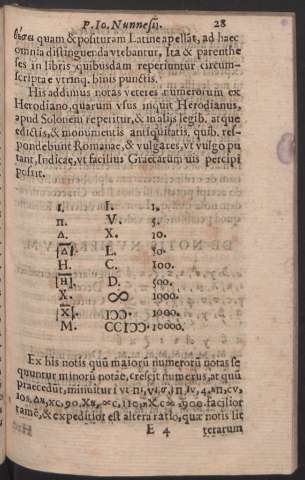 P. Io. Nunnesij. 28
θέσει quam & posituram Latine apellat, ad hæc
omnia distinguenda vtebantur, Ita & parenthe
ses in libris quibusdam reperiuntur circum-
scriptæ vtrinq. binis punctis.
His addimus notas veteres numerorum ex
Herodiano, quarum vsus inquit Herodianus,
apud Solonem reperitur, & in alijs legib. atque
edictis, & monumentis antiquitatis, quib. res-
pondebunt Romanae, & vulgares, vt vulgo pu
tant, Indicae, vt facilius Graecarum uis percipi
possit.
Ι. I. 1.
Π. V. 5.
Δ. X. 10.
|Δ| L. 50.
H. C. 100.
|H| D. 500.
X. ꝏ 1000.
|X| IƆƆ. 5000.
M. CCIƆƆ. 10000.
Ex his notis quū maiorū numerorū notas se
quuntur minorū notæ, crescit numerus, at quū
præcedūt, minuitur
facilior
tamē, & expeditior est altera ratio, quæ notis lit
E 4 terarum